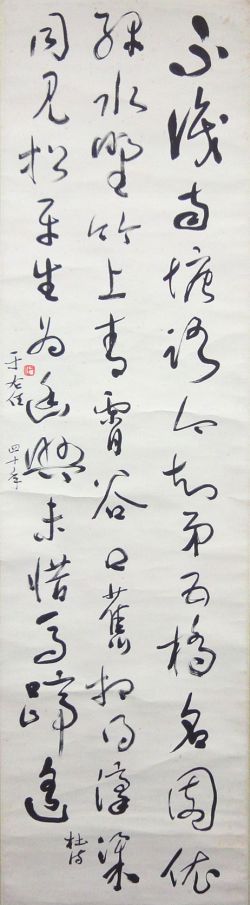 不識南塘路今知第五橋名園依
綠水野竹上青霄谷口舊相得濠梁
同見招平生為幽興未惜馬蹄遙
杜詩
四十年
于右任